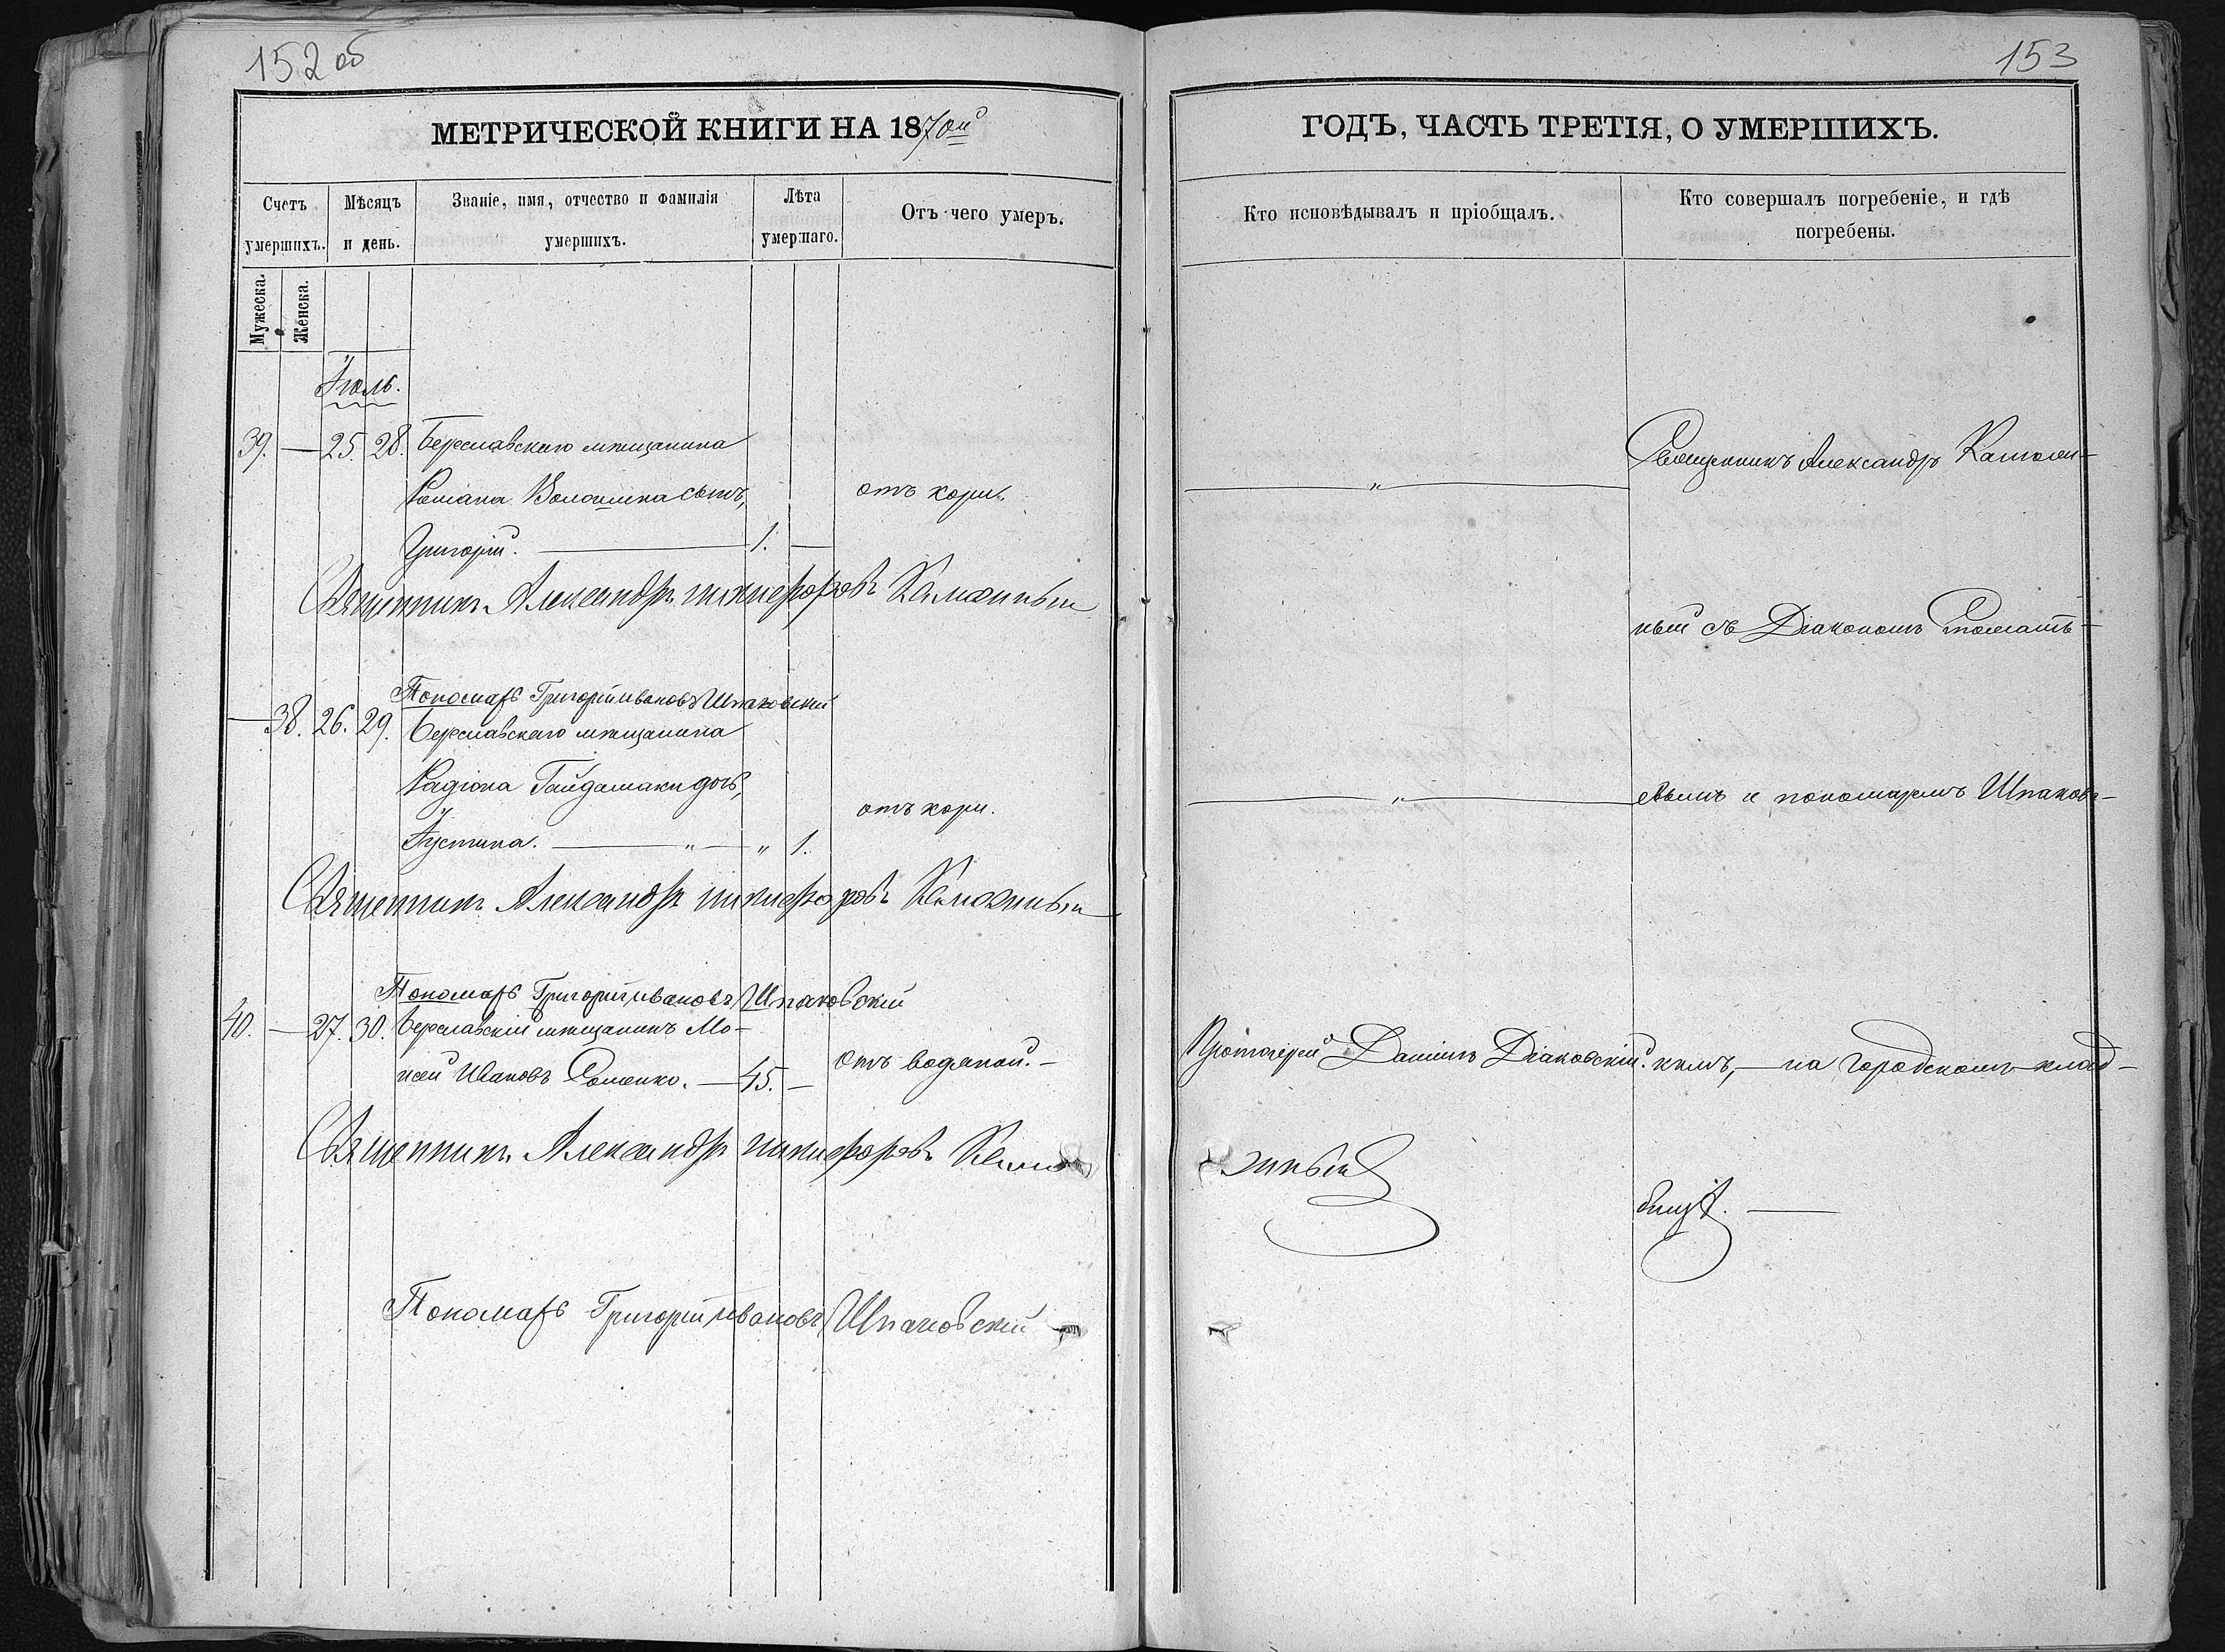 152 об
МЕТРИЧЕСКОЙ КНИГИ НА 1870ий
Счетъ умершихъ.
Мѣсяцъ и день.
Званіе, имя, отчество и фамилія умершихъ.
Лѣта умершаго.
Отъ чего умеръ.
Мужеска.
Женска.
Іюль.
39. — 25. 28. Бериславскаго мѣщанина
Романа Волошина сынъ, отъ кори.
Григорій. — 1. —
Священникъ Александръ Никифоровъ
Пономарь Григорій Ивановъ Шпаковскій
— 38. 26. 29. Бериславскаго мѣщанина
Радіона Гайдамаки дочь,
отъ кори.
Іустина. — " — " 1.
Священникъ Александръ Никифоровъ
Пономарь Григорій Ивановъ Шпаковскій
40. — 27. 30. Бериславскій мѣщанинъ Мо-
исей Ивановъ Соменко. — 45. — отъ водяной. —
Священникъ Александръ Никифоровъ
Пономарь Григорій Ивановъ Шпаковскій
153
ГОДЪ, ЧАСТЬ ТРЕТІЯ, О УМЕРШИХЪ.
Кто исповѣдывалъ и пріобщалъ.
Кто совершалъ погребеніе, и гдѣ
погребены.
Священникъ Александръ
— " —
ный съ Діакономъ
— " — евымъ и пономаремъ Шпаковс-
Протоіерей Даніилъ Діаковскій. кимъ, — на городскомъ клад-
бищѣ. —